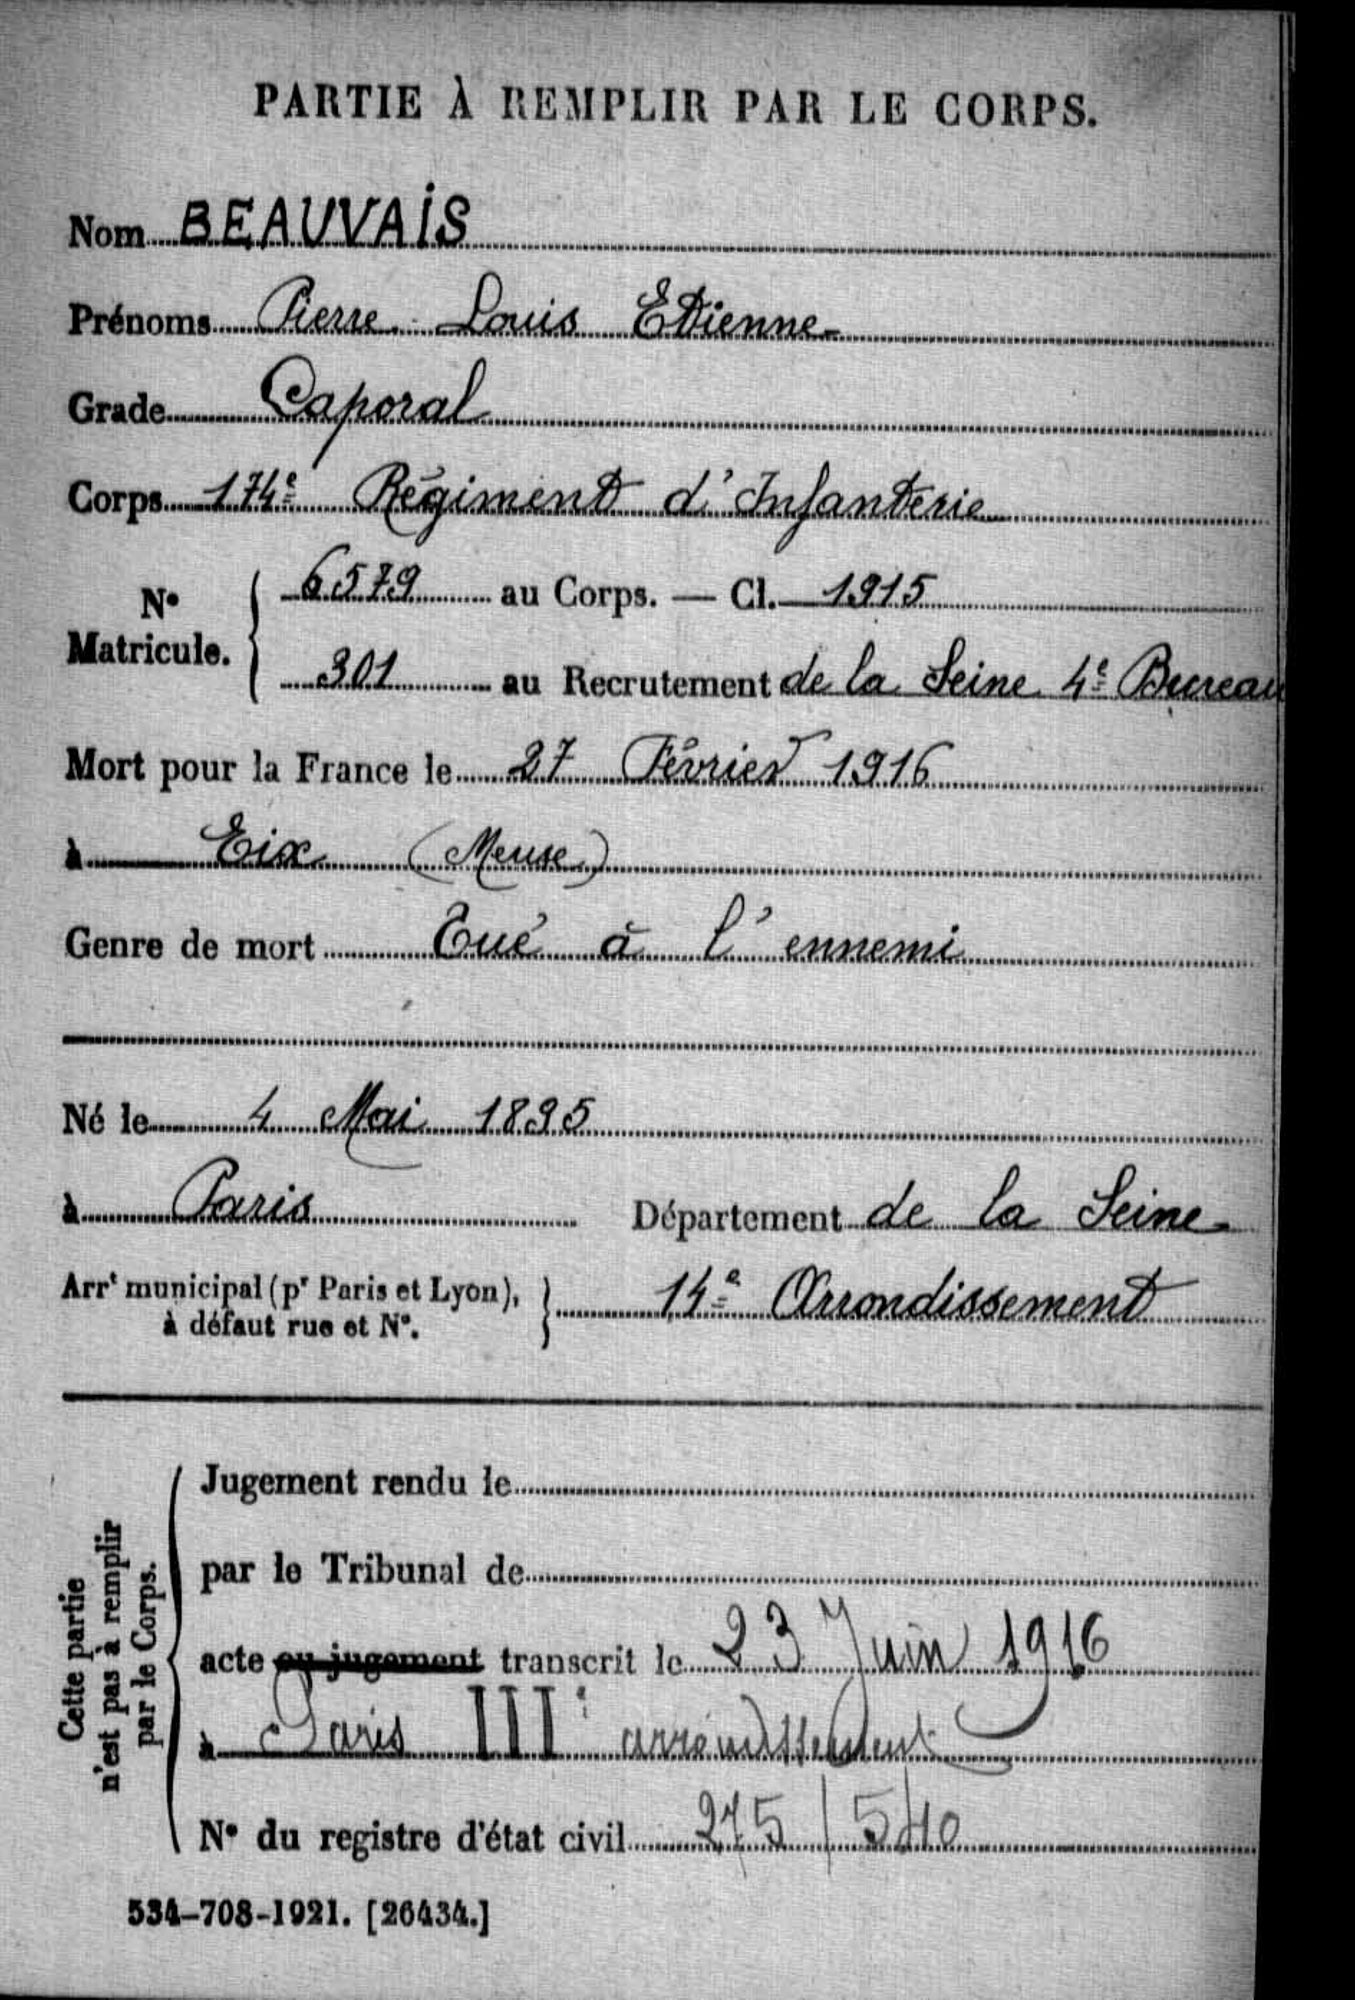 PARTIE À REMPLIR PAR LE CORPS.
Nom BEAUVAIS
Prénoms Pierre Louis Etienne
Grade Caporal
Corps 174e Régiment d'Infanterie
N° Matricule. { 6579 au Corps. — Cl. 1915
301 au Recrutement de la Seine 4e Bureau
Mort pour la France le 27 Février 1916
à Eix (Meuse)
Genre de mort Tué à l'ennemi
Né le 4 Mai 1895
à Paris Département de la Seine
Arrt municipal (pr Paris et Lyon), à défaut rue et N°. } 14e Arrondissement
Cette partie n'est pas à remplir par le Corps.
Jugement rendu le
par le Tribunal de
acte ou jugement transcrit le 23 Juin 1916
à Paris III arrondissement
N° du registre d'état civil 275/540
534-708-1921. [26434.]